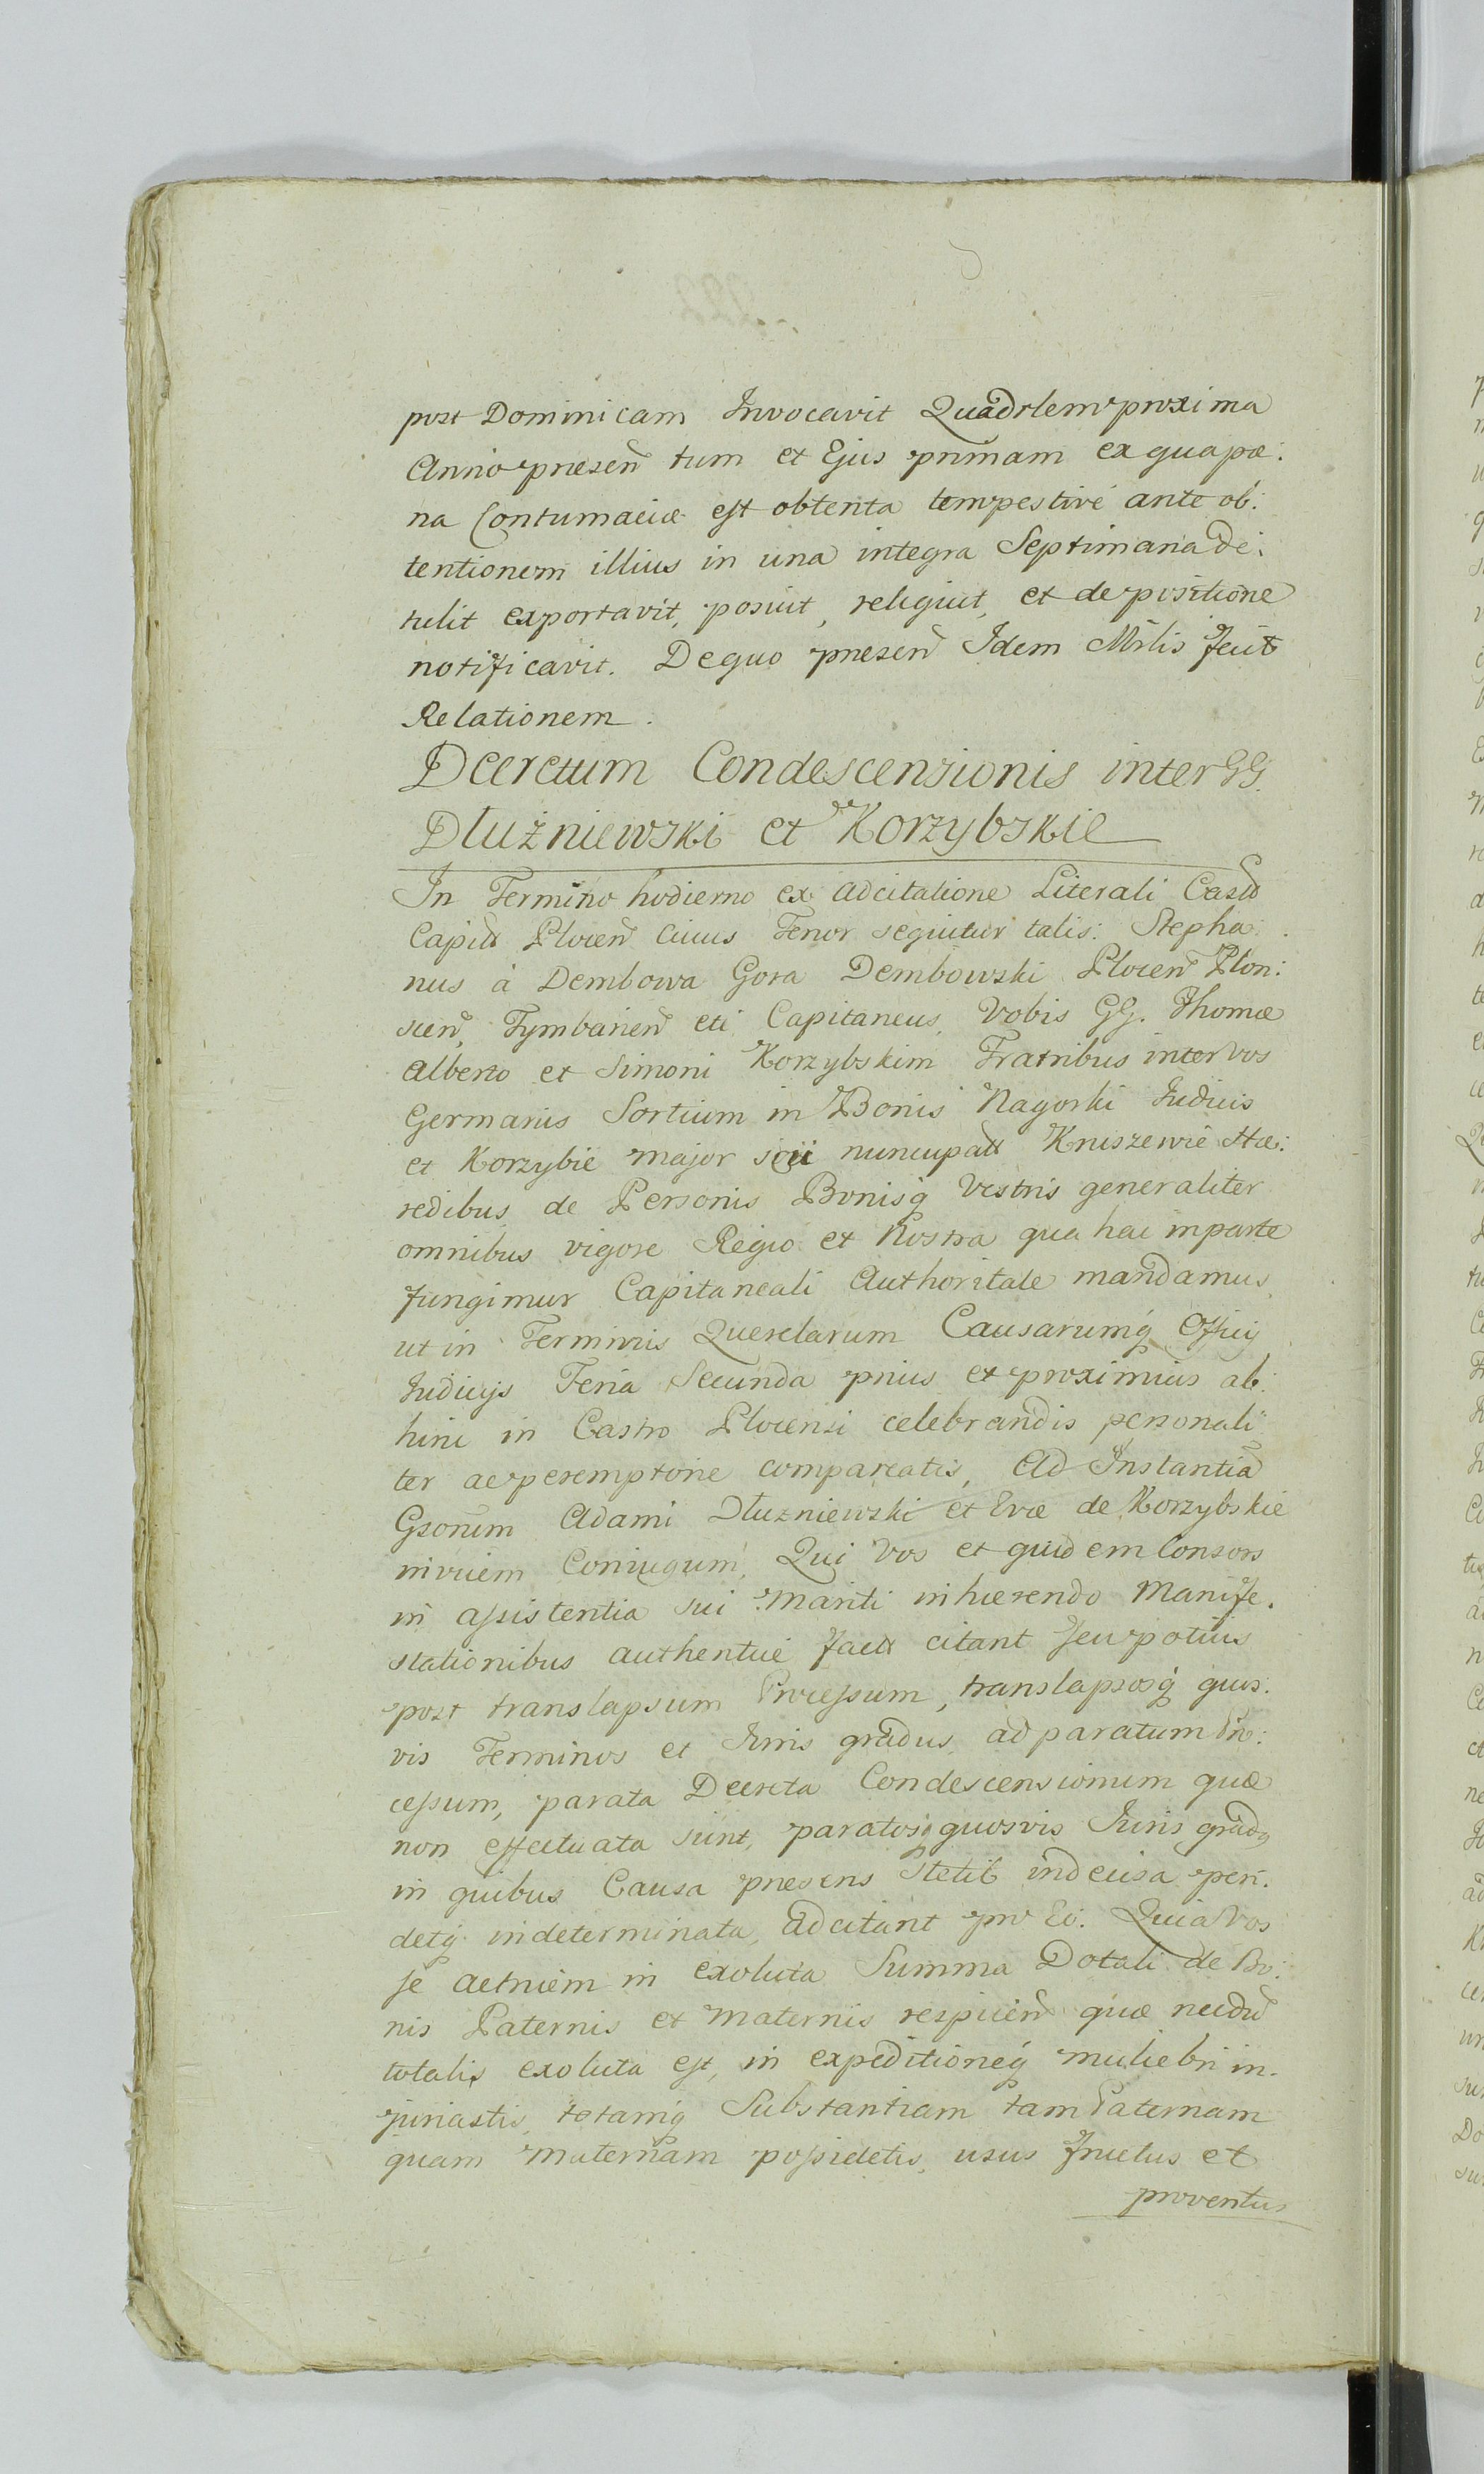 post Dominicam Invocavit Quadrlem proxima
Anno praesen̄ tum et Ejus primam ex qua pœ:
na Contumaciæ est obtenta tempestivé ante ob:
tentionem illius in una integra Septimana de:
tulit exportavit, posuit, reliquit, et de positione
notificavit. De quo praesen̄ Idem Mrlis fecit
Relationem.
Decretum Condescensionis inter GG.
Dłużniewski et Korzybskie
In Termino hodierno ex adcitatione Literali Castr
Capitt Plocen̄ Cuius Tenor sequitur talis: Stepha:
nus à Dembowa Gora Dembowski Plocen̄ Plon:
scen̄, Tymbarien̄ etc Capitaneus, Vobis GG. Thomæ
Alberto et Simoni Korzybskim Fratribus inter vos
Germanis Sortium in Bonis Nagorki
et Korzybie major nuncupatt Kniszewie Hæ:
redibus de Personis Bonisq̀ Vestris generaliter
omnibus vigore Regio et Nostra qua hac in parte
fungimur Capitaneali Authoritate mandamus,
ut in Terminis Querelarum Causarumq̀ Officij
Judicijs Feria Secunda prius et proximius ab:
hinc in Castro Plocensi celebrandis personali:
ter ac peremptorie compareatis, Ad Instantiā
Gsorum Adami Dłuzniewski et Evæ de Korzybskie
invicem Coniugum, Qui Vos et quidem Consors
in assistentia sui Mariti inhærendo Manife:
stationibus authenticé factt citant seu potius
post translapsum Processum, translapsosq̀ quos:
vis Terminos et Juris gradus, ad paratum Pro:
cessum, parata Decreta Condescensionum quæ
non effectuata sunt, paratosq̀ quosvis Juris gradq
in quibus Causa præsens Stetit indecisa pen:
detq̀ indeterminata, adcitant pro Eo. Quia Vos
se Actricem in exoluta Summa Dotali de Bo:
nis Paternis et Maternis respicien̄ quæ necdū
totalis exoluta est, in expeditioneq̀ muliebri in:
juriastis, totamq̀ Substantiam tam Paternam
quam Maternam possidetis, usus fructus et
proventus